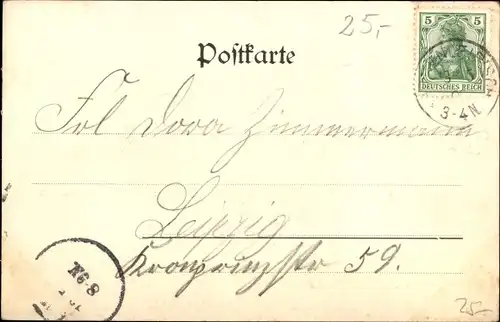 25,-
Postkarte
5 5
DEUTSCHES REICH
3-4N
Frl Dora Zimmermann
Leipzig
Kronprinzstr 59.
8-9V.
25-